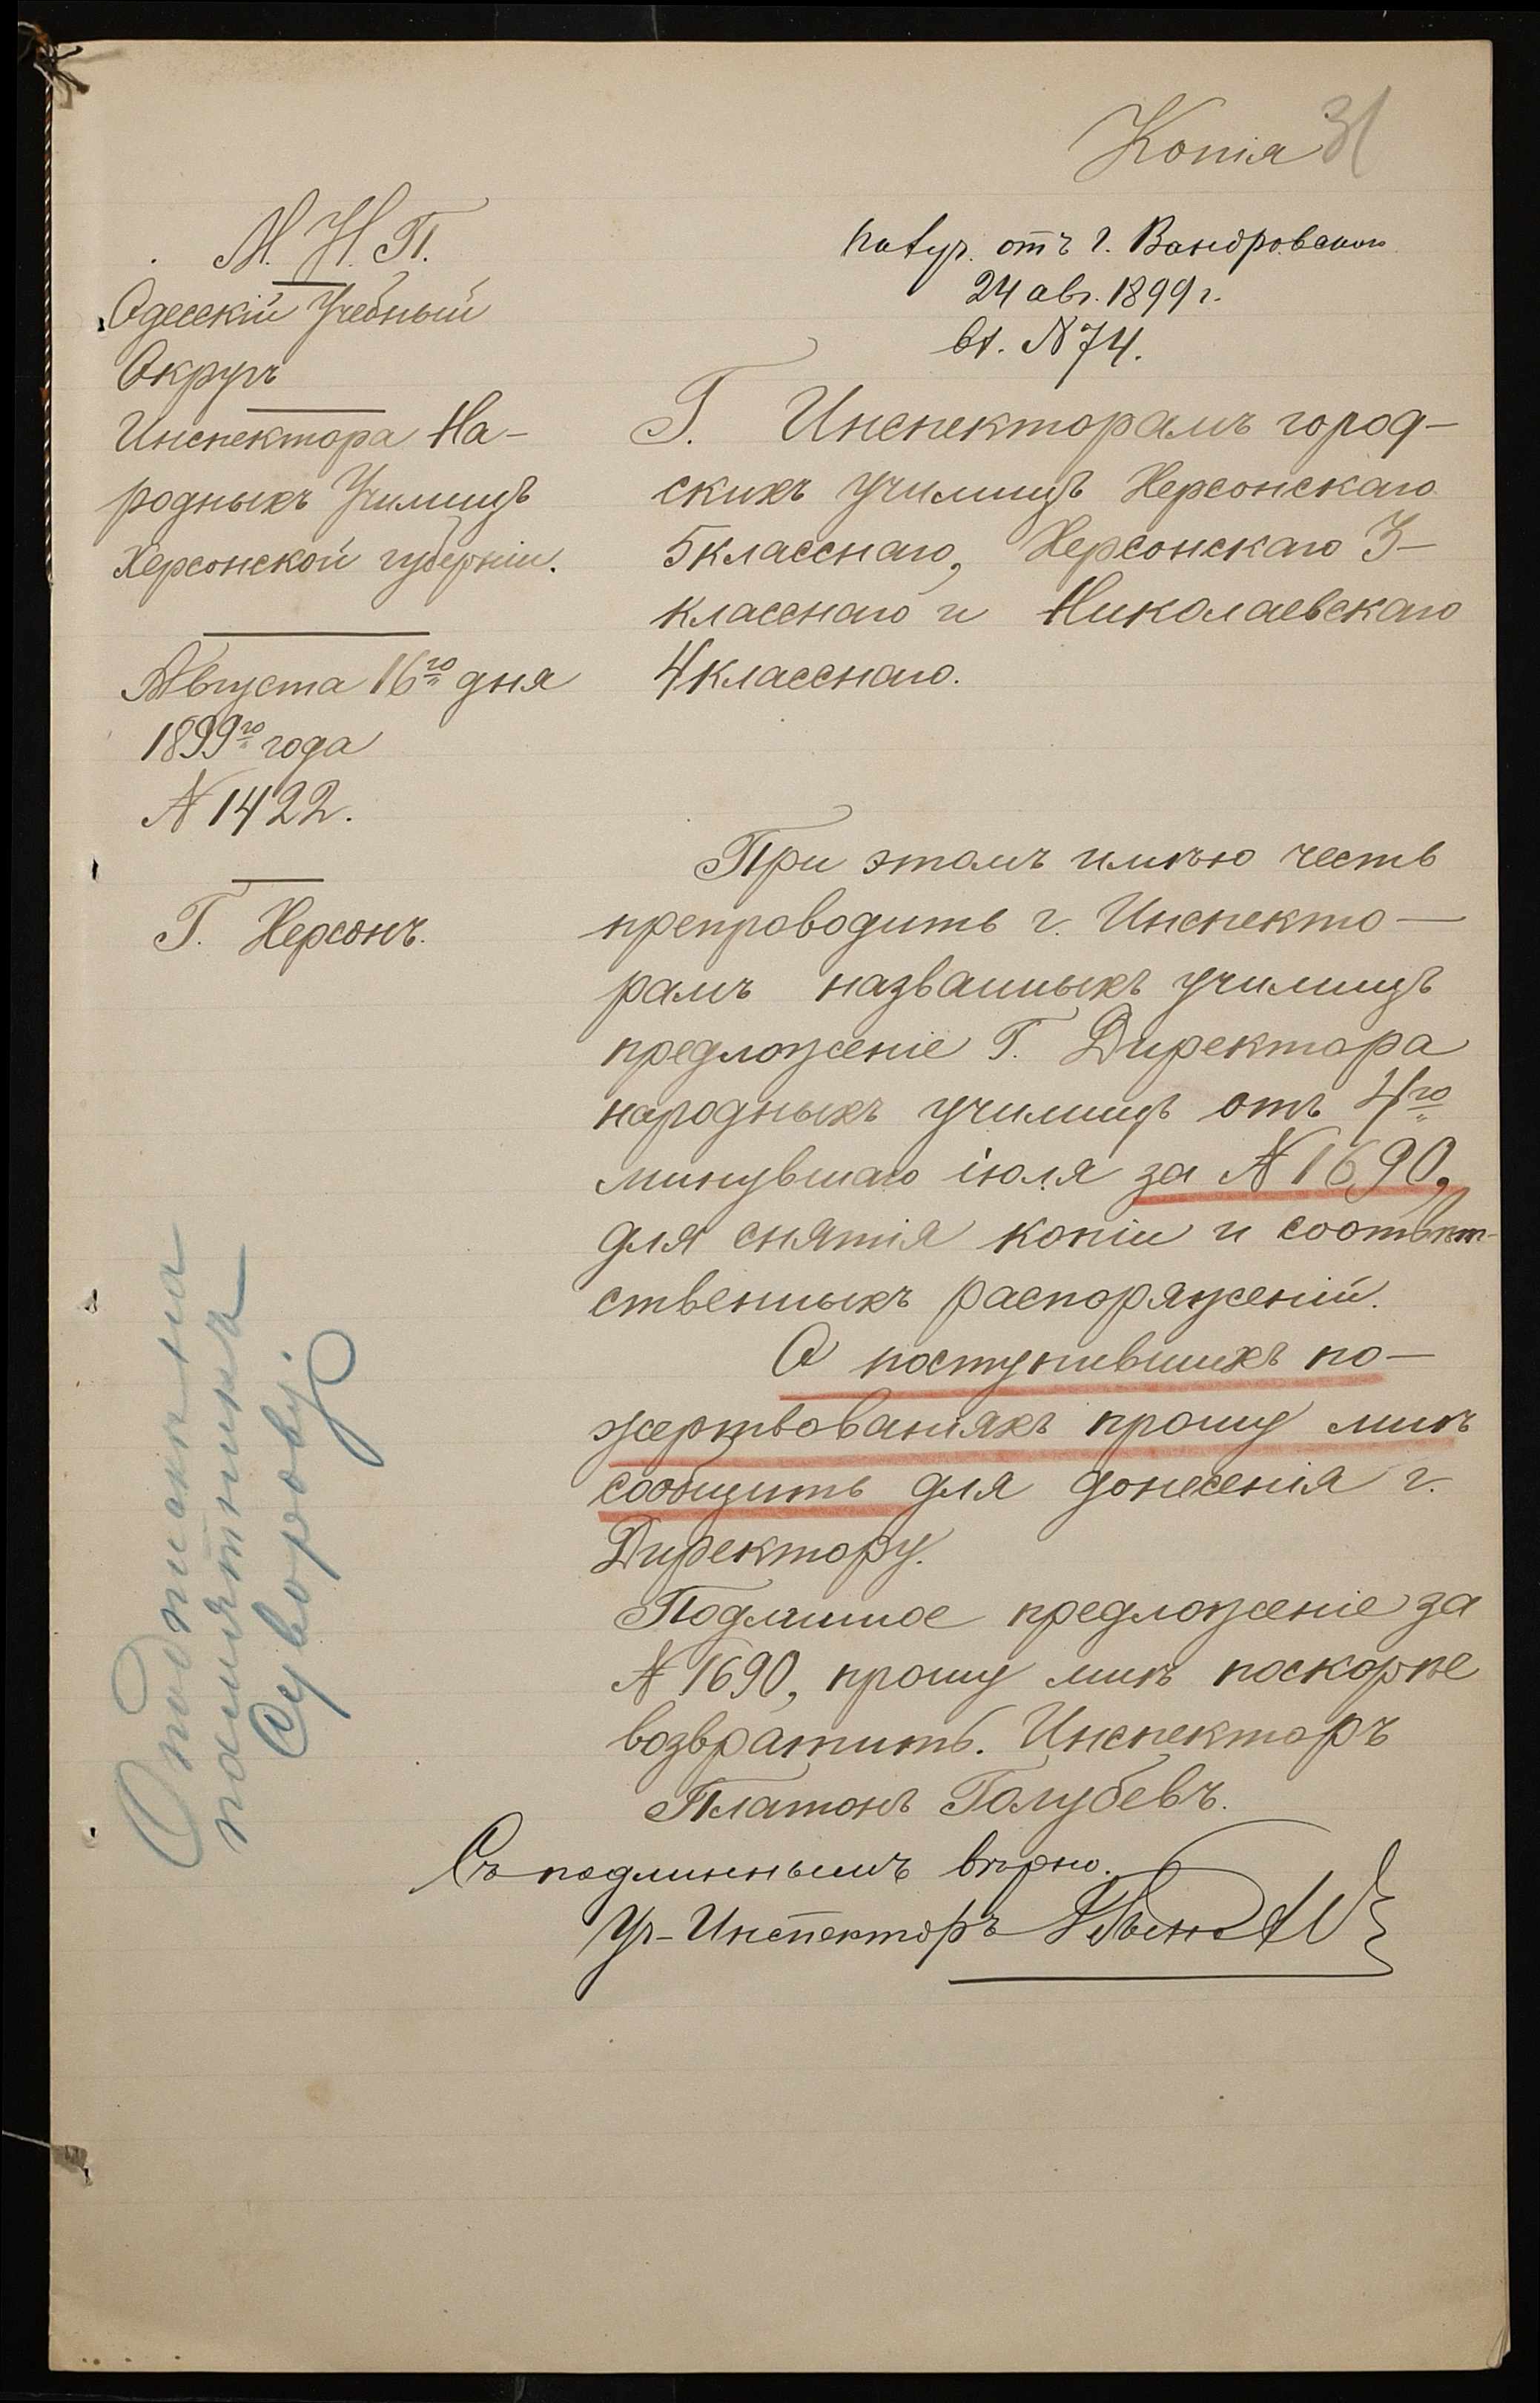 Копія 31
М. Н. П.
Одесскій Учебный
Округъ
Инспектора На-
родныхъ Училищъ
Херсонской губерніи.
Августа 16го дня
1899го года
N 1422.
Г. Херсонъ.
отъ г.
24 авг. 1899 г.
вх. N 74.
Г. Инспекторамъ город-
скихъ училищъ Херсонскаго
5класснаго, Херсонскаго 3-
класснаго и Николаевскаго
4класснаго.
При этомъ имѣю честь
препроводить г. Инспекто-
рамъ названныхъ училищъ
предложеніе Г. Директора
народныхъ училищъ отъ 4го
минувшаго іюля за N 1690,
для снятія копіи и соотвѣт-
ственныхъ распоряженій.
О поступившихъ по-
жертвованіяхъ прошу мнѣ
сообщить для донесенія г.
Директору.
Подлинное предложеніе за
N 1690, прошу мнѣ поскорѣе
возвратить. Инспекторъ
Платонъ Голубевъ.
Съ подлиннымъ вѣрно.
Уч-Инспекторъ
О подпискѣ на
памятникъ
Суворову.